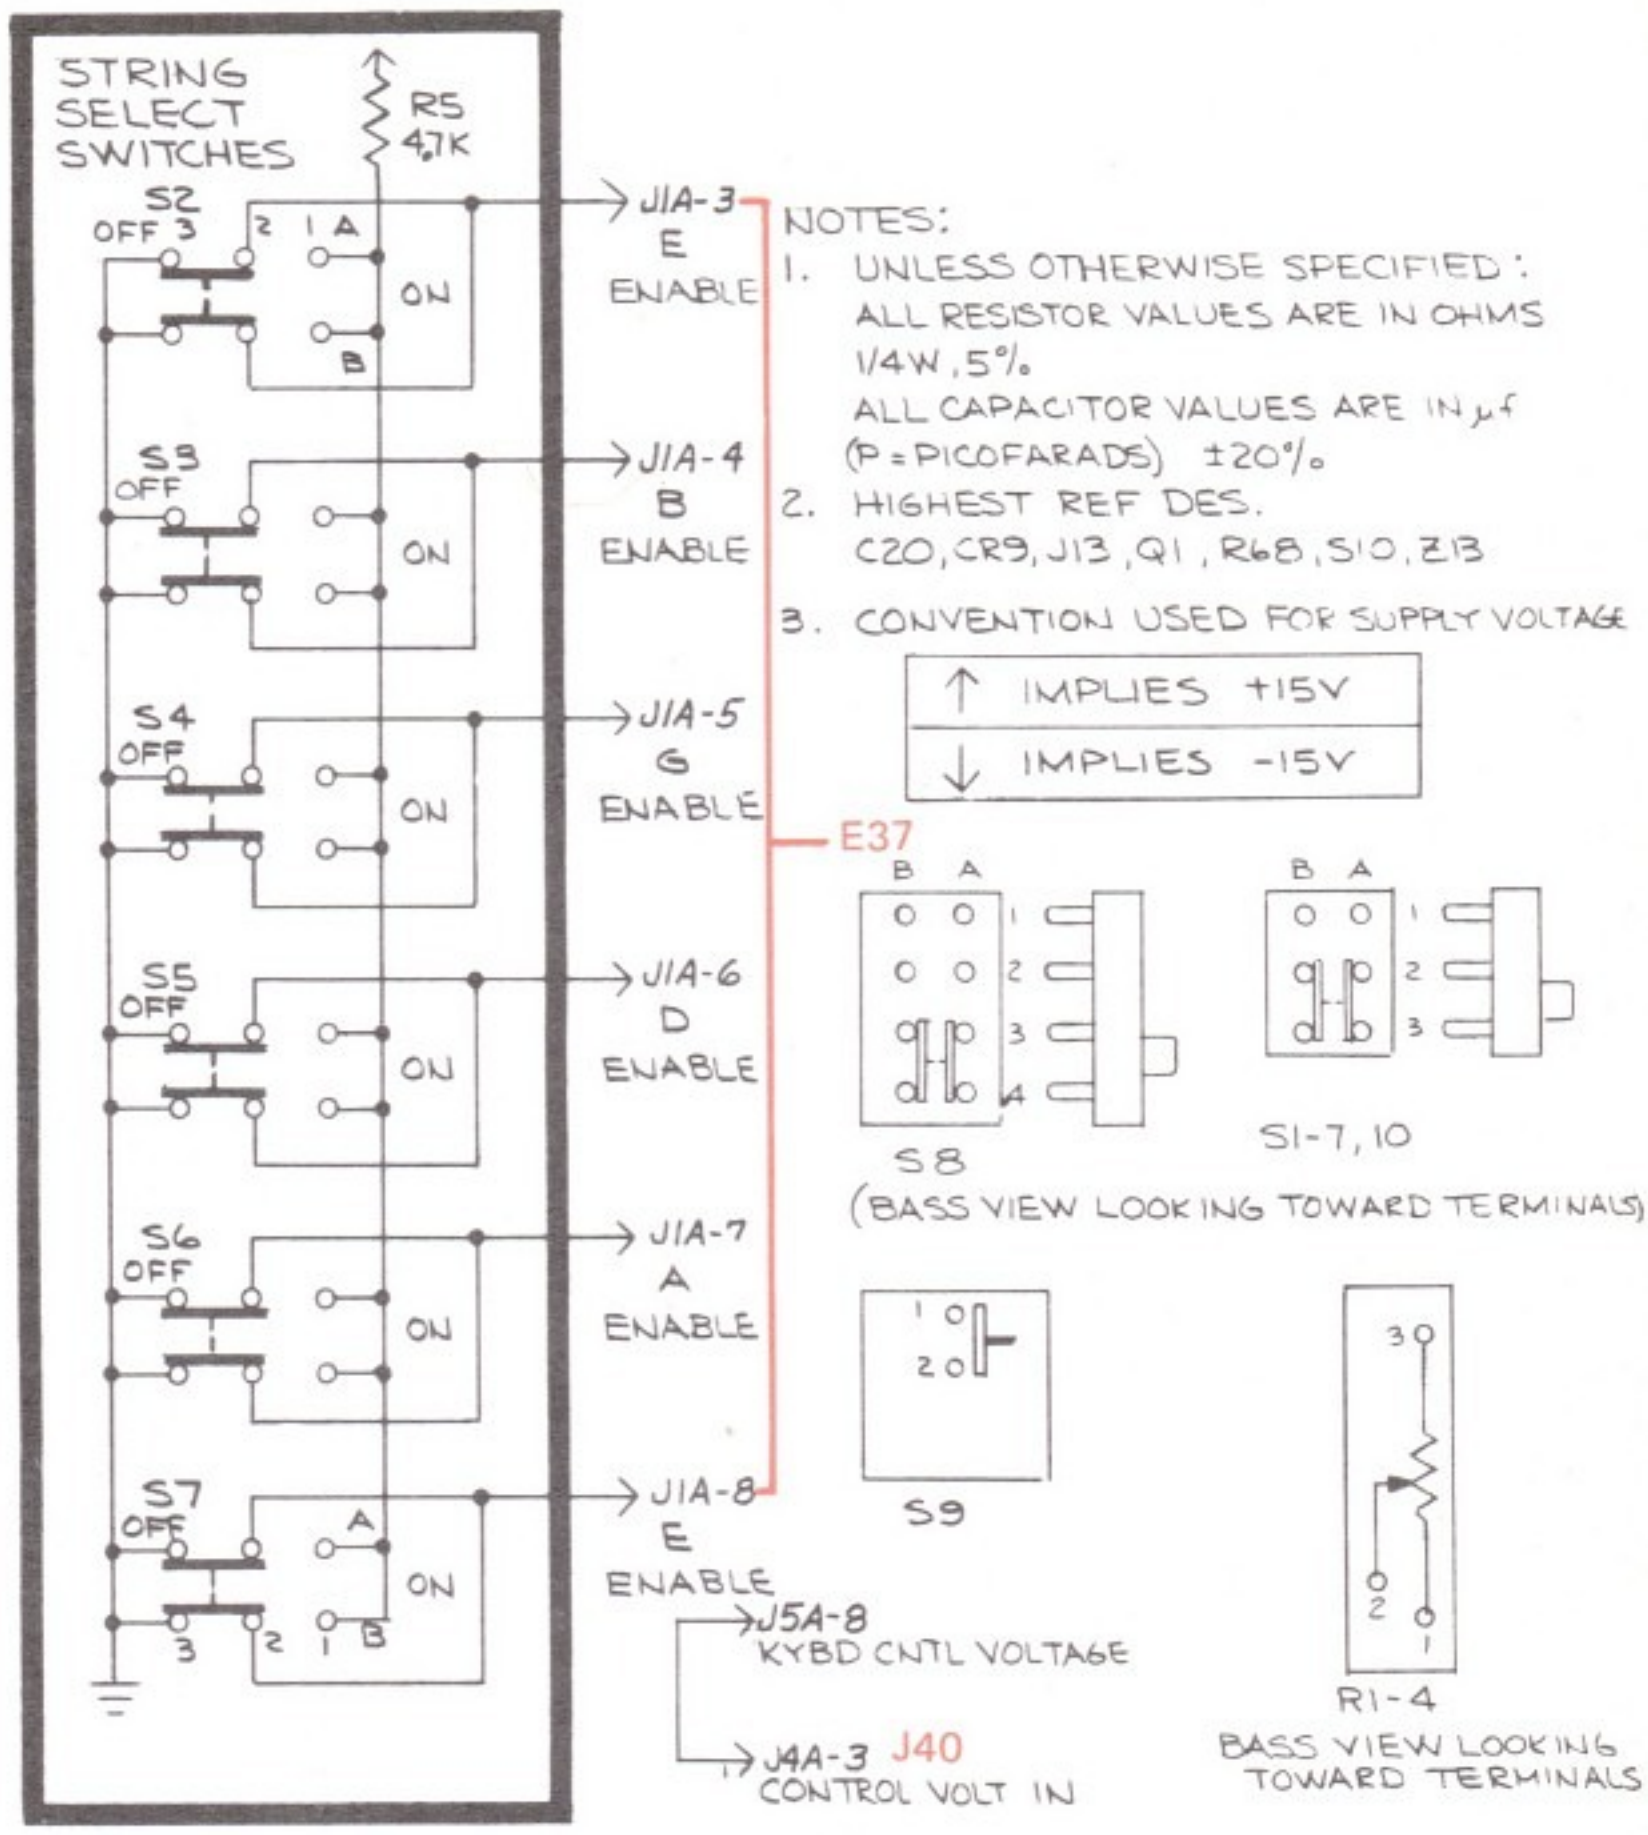 STRING
SELECT
SWITCHES
R5
4.7K
S2
OFF 3 2 1 A
ON
B
J1A-3
E
ENABLE
S3
OFF
ON
J1A-4
B
ENABLE
S4
OFF
ON
J1A-5
G
ENABLE
S5
OFF
ON
J1A-6
D
ENABLE
S6
OFF
ON
J1A-7
A
ENABLE
S7
OFF
A
ON
3 2 1 B
J1A-8
E
ENABLE
E37
J5A-8
KYBD CNTL VOLTAGE
J4A-3 J40
CONTROL VOLT IN
NOTES:
1. UNLESS OTHERWISE SPECIFIED:
ALL RESISTOR VALUES ARE IN OHMS
1/4W, 5%
ALL CAPACITOR VALUES ARE IN µf
(P = PICOFARADS) ±20%
2. HIGHEST REF DES.
C20, CR9, J13, Q1, R68, S10, Z13
3. CONVENTION USED FOR SUPPLY VOLTAGE
↑ IMPLIES +15V
↓ IMPLIES -15V
B A
1
2
3
4
S8
B A
1
2
3
S1-7, 10
(BASS VIEW LOOKING TOWARD TERMINALS)
1
2
S9
3
2
1
R1-4
BASS VIEW LOOKING
TOWARD TERMINALS